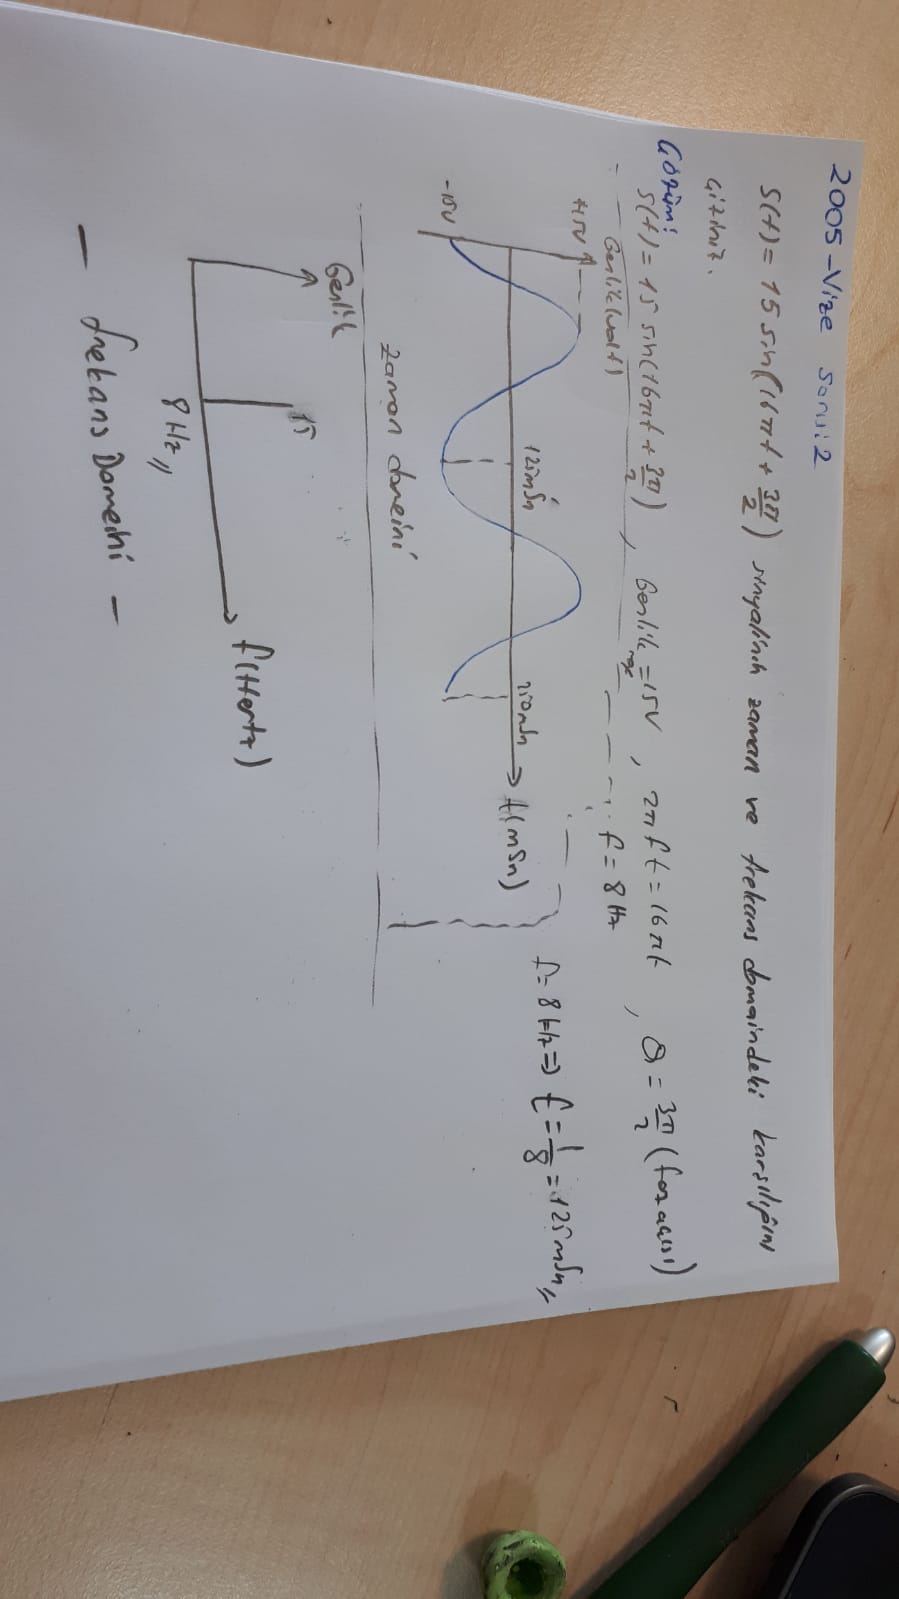 2005-Vize Soru:2
S(t) = 15 sin(16πt + 3π/2) sinyalinin zaman ve frekans domaindeki karşılığını
çiziniz.
Çözüm:
S(t) = 15 sin(16πt + 3π/2), Genlik max = 15V, 2πft = 16πt, θ = 3π/2 (faz açısı)
Genlik(volt) f = 8 Hz
+15V
125mSn 250mSn t(mSn) f = 8Hz => t = 1/8 = 125mSn//
-15V
Zaman domeini
Genlik
15
f(Hertz)
8 Hz//
- frekans Domeini -